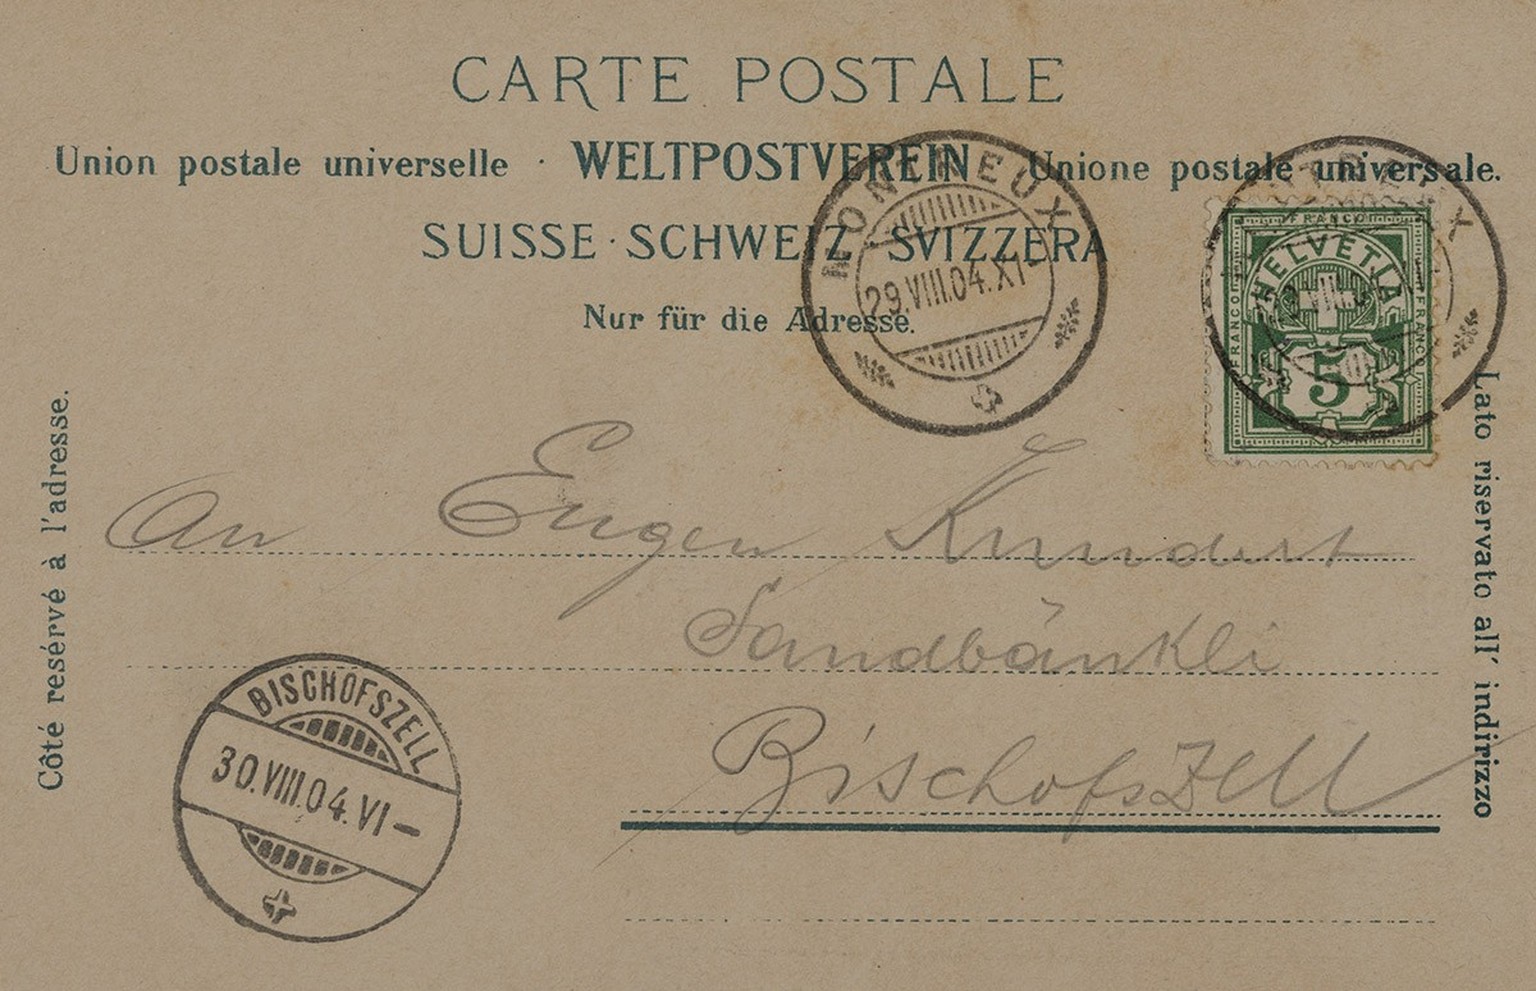 CARTE POSTALE
Union postale universelle · WELTPOSTVEREIN · Unione postale universale.
SUISSE · SCHWEIZ · SVIZZERA
Nur für die Adresse.
Côté resérvé à l'adresse.
Lato riservato all' indirizzo
MONTREUX
29.VIII.04.XI-
MONTREUX
FRANCO
HELVETIA
FRANCO
FRANCO
5
An Eugen Kundert
Sandbänkli
Bischofszell
BISCHOFSZELL
30.VIII.04.VI-